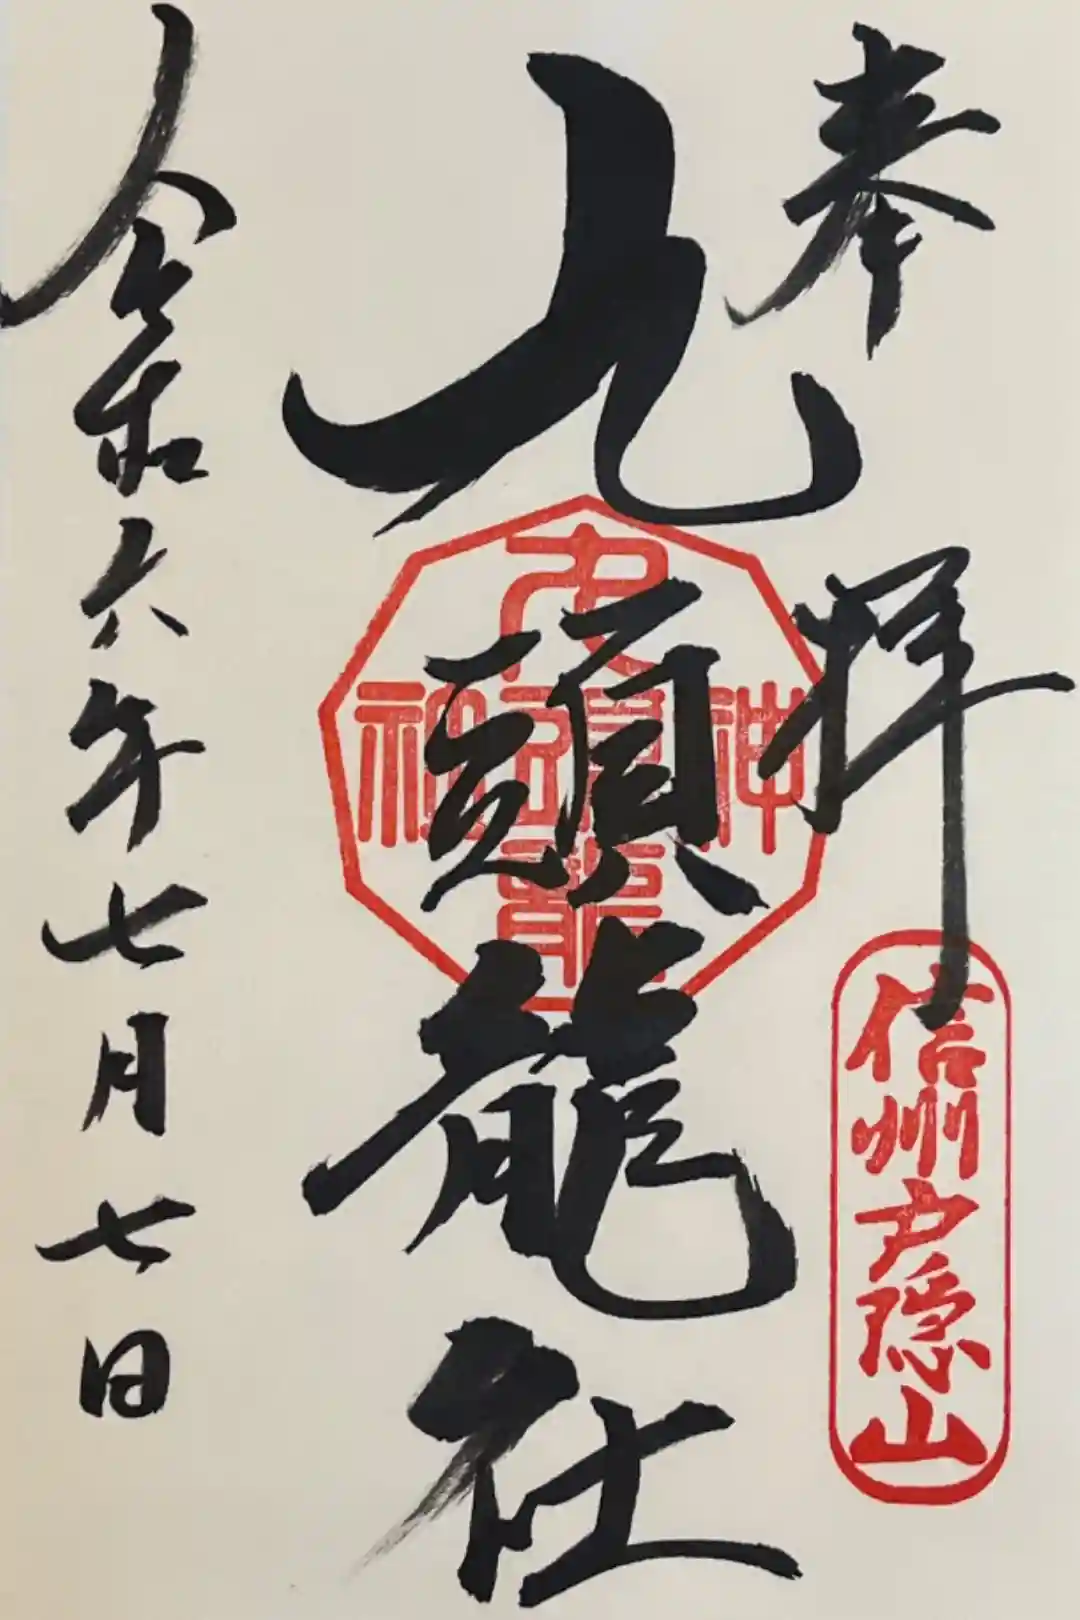 奉拝
信州戸隠山
九頭龍社
九頭龍
神社
令和六年七月七日